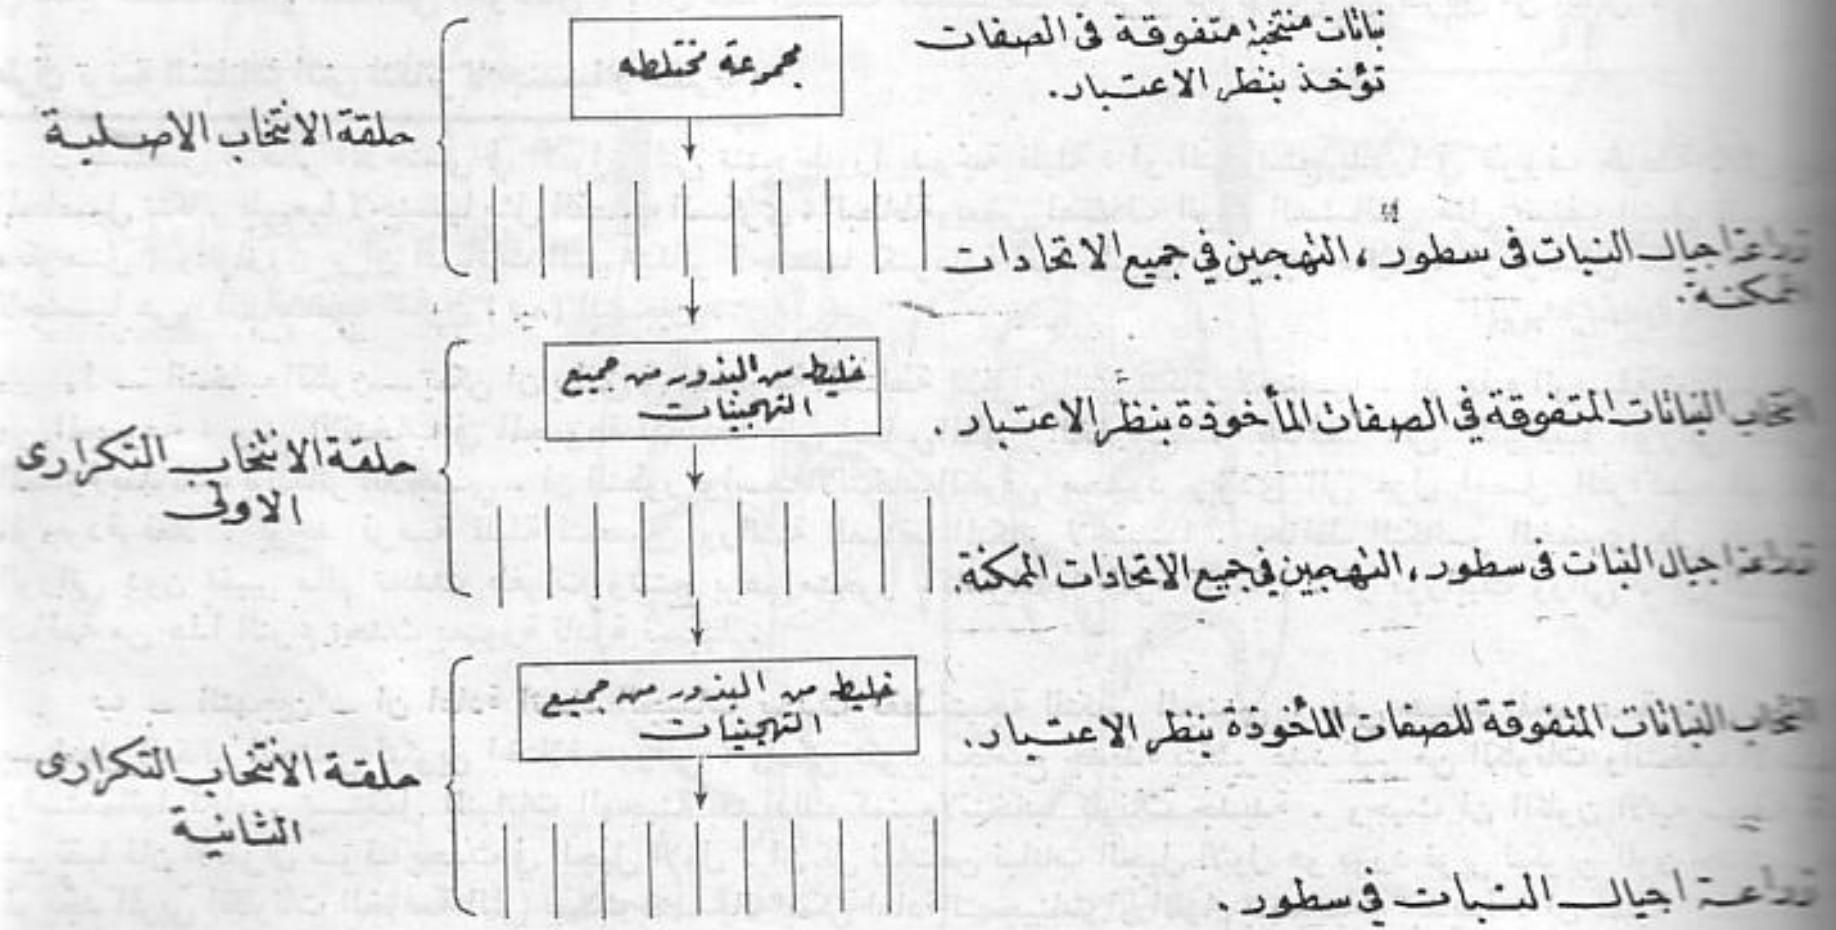 نباتات منتخبة متفوقة فى الصفات
تؤخذ بنظر الاعتبار.
مجموعة مختلطه
حلقة الانتخاب الاصلية
زراعة اجيال النبات فى سطور ، التهجين في جميع الاتحادات
الممكنة.
خليط من البذور من جميع
التهجينات
انتخاب النباتات المتفوقة في الصفات المأخوذة بنظر الاعتبار .
حلقة الانتخاب التكرارى
الاولى
زراعة اجيال النبات فى سطور ، التهجين في جميع الاتحادات الممكنة.
خليط من البذور من جميع
التهجينات
انتخاب النباتات المتفوقة للصفات المأخوذة بنظر الاعتبار.
حلقة الانتخاب التكرارى
الثانية
زراعة اجيال النبات في سطور .